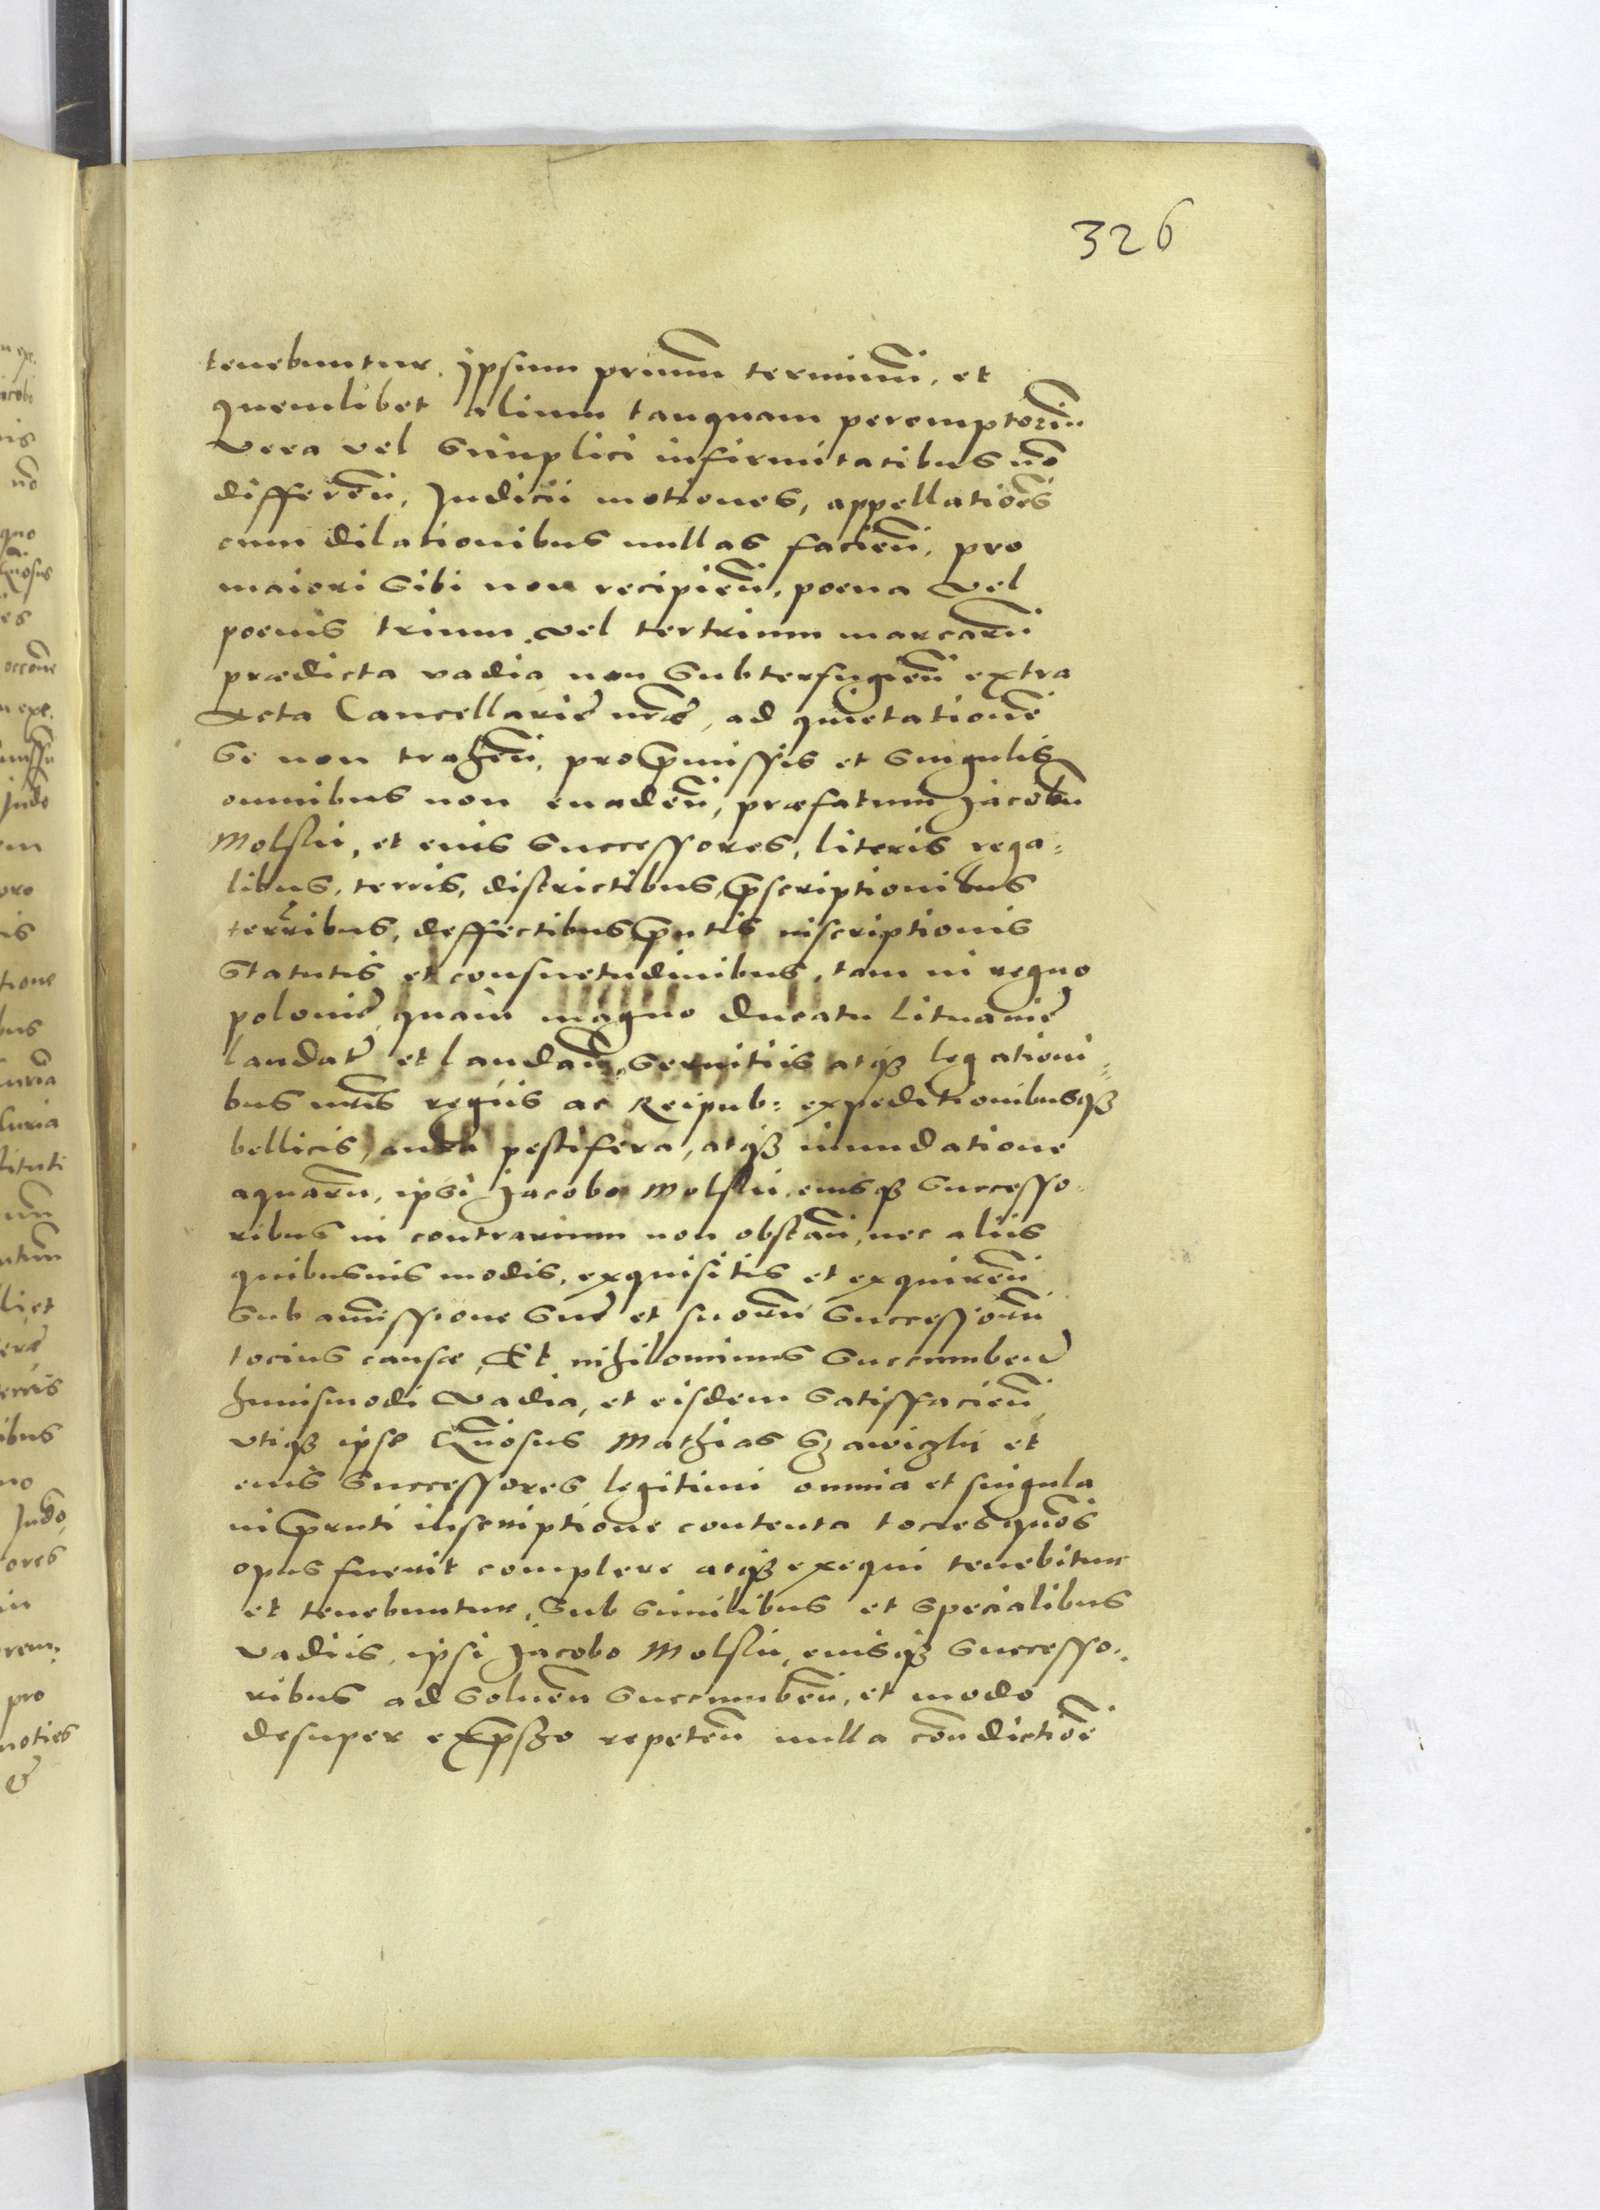 326
tenebuntur. Ipsum primũ terminũ, et
quemlibet alium tanquam peremptoriũ
vera vel simplici infirmitatibus nõ
differeñ, Iudicii motiones, appellatiões
cum dilationibus nullas facieñ, pro
maiori sibi non recipieñ, poena vel
poenis trium vel ter trium marcarũ
prædicta vadia non subterfugieñ extra
Acta Cancellariæ nr̃æ, ad quietationẽ
se non traheñ, pro p̃missis et singulis
omnibus non euadeñ, præfatum Iacobũ
Molski, et eius successores, literis rega:
libus, terris, districtibus, p̃scriptionibus
terr̃ribus, deffectibus p̃ntis inscriptionis
statutis et consuetudinibus, tam in regno
poloniæ quàm magno Ducatu Lituaniæ
laudatꝭ et laudañ, seruitiis atqꝫ legationi:
bus nr̃is regiis ac Reipub: expeditionibusqꝫ
bellicis, aura pestifera, atqꝫ inundatione
aquarũ, ipsi Iacobo Molski, eiusqꝫ successo
ribus in contrarium non obstañ, nec aliis
quibusuis modis, exquisitis et exquireñ
sub amissione suæ et suorũ successorũ
tocius causæ, Et nihilominus succumbenꝭ
huiusmodi vadia, et eisdem satisfacieñ,
vtiqꝫ ipse Gñosus Mathias et
eius successores legitimi omnia et singula
in p̃nti inscriptione contenta tocies quõs
opus fuerit complere atqꝫ exequi tenebitur
et tenebuntur, sub similibus et specialibus
vadiis, ipsi Iacobo Molski, eiusqꝫ successo:
ribus ad solueñ succumbeñ, et modo
desuper exp̃sso repeteñ nulla condictiõe